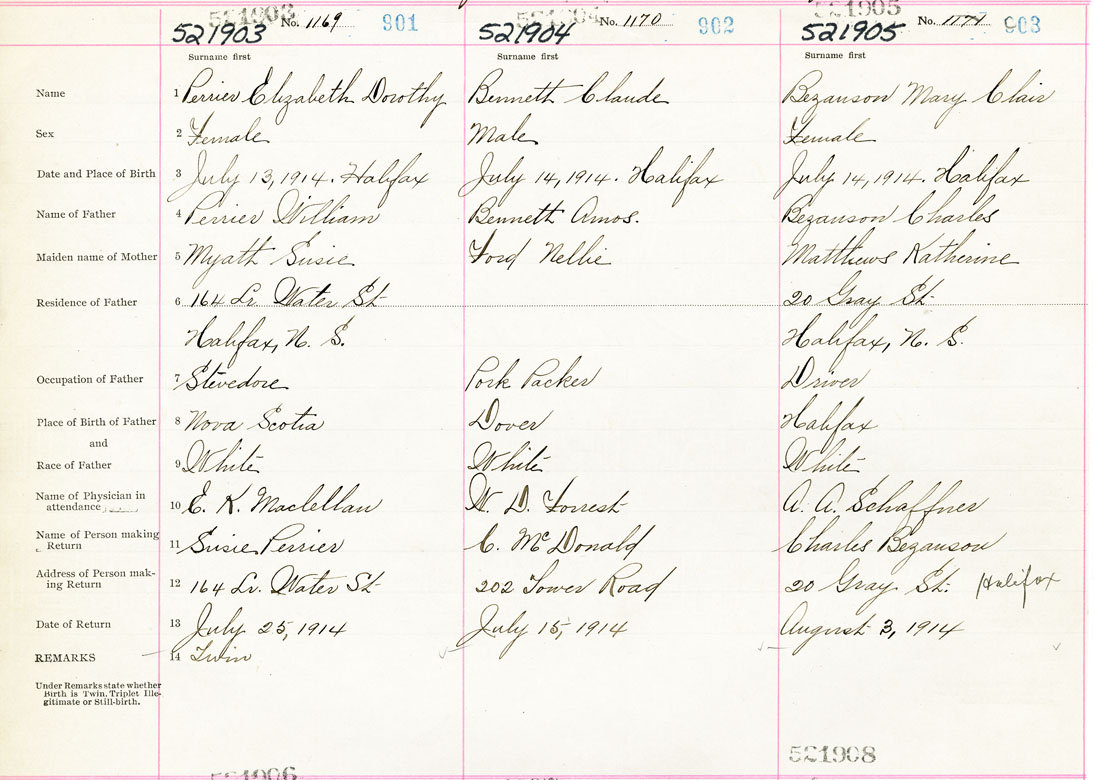 521903 No. 1169 901 521904 No. 1170 902 521905 No. 903
Surname first Surname first Surname first
Name 1 Perrier Elizabeth Dorothy Bennett Claude Bezanson Mary Clair
Sex 2 Female Male Female
Date and Place of Birth 3 July 13, 1914. Halifax July 14, 1914. Halifax July 14, 1914. Halifax
Name of Father 4 Perrier William Bennett Amos. Bezanson Charles
Maiden name of Mother 5 Myatt Susie Ford Nellie Matthews Katherine
Residence of Father 6 164 Lr. Water St 20 Gray St.
Halifax, N. S. Halifax, N. S.
Occupation of Father 7 Stevedore Pork Packer Driver
Place of Birth of Father 8 Nova Scotia Dover Halifax
and
Race of Father 9 White White White
Name of Physician in
attendance 10 E. K. Maclellan W. D. Forrest A. A. Schaffner
Name of Person making
Return 11 Susie Perrier C. McDonald Charles Bezanson
Address of Person mak-
ing Return 12 164 Lr. Water St 202 Tower Road 20 Gray St. Halifax
Date of Return 13 July 25, 1914 July 15, 1914 August 3, 1914
REMARKS 14 Twin
Under Remarks state whether
Birth is Twin, Triplet Ille-
gitimate or Still-birth.
521908